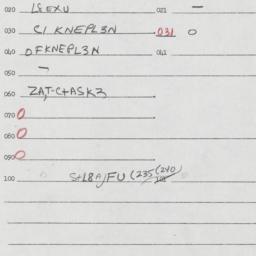 020 LSEXU 021 —
030 CI KNEPL3N 031 0
040 DFKNEPL3N 041
050 —
060 ZA,T-C+ASK3
070 0
080 0
090 0
100 S+L8A/FU (235(240)